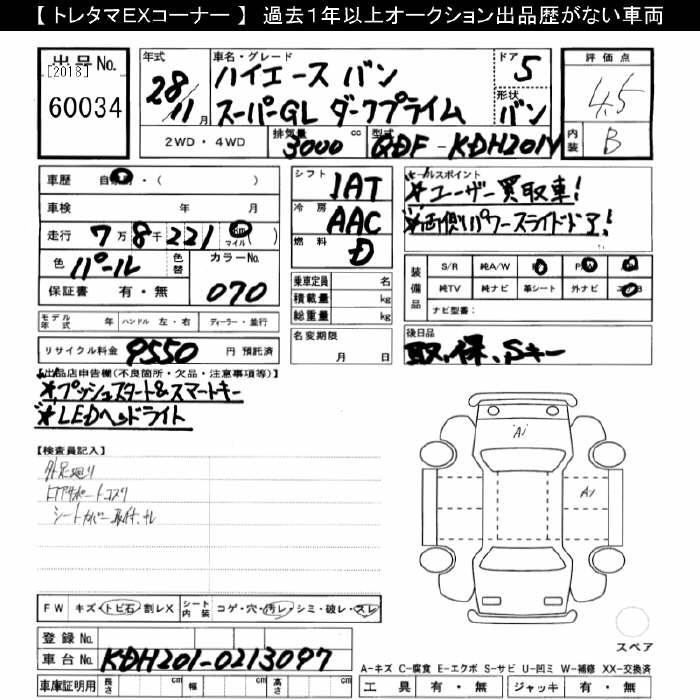 【 トレタマEXコーナー 】 過去1年以上オークション出品歴がない車両
出品No.
[2018]
60034
年式
28/11月
車名・グレード
ハイエース バン
スーパーGL ダークプライム
ドア
5
形状
バン
評価点
4.5
内装
B
2WD・4WD
排気量
3000 cc
型式
QDF-KDH201V
車歴
・(　)
車検 年 月
走行 7万8千221 km マイル ( )
色 パール
色替
カラーNo.
070
保証書 有・無
モデル年式 年
ハンドル 左・右
ディーラー・並行
リサイクル料金 9550 円 預託済
シフト 1AT
冷房 AAC
燃料 D
乗車定員 名
積載量 kg
総重量 kg
名変期限
月 日
セールスポイント
★ユーザー買取車!
★両側パワースライドドア!
装備品
S/R
純A/W
純TV
純ナビ
革シート
外ナビ
ナビ型番:
後日品
取、保、Sキー
【出品店申告欄(不良箇所・欠品・注意事項等)】
★プッシュスタート&スマートキー
★LEDヘッドライト
【検査員記入】
シートカバー取付
FW キズ・トビ石・割レX
シート内装 コゲ・穴・汚レ・シミ・破レ・スレ
登録No.
車台No. KDH201-0213097
車庫証明用 長さ cm 幅 cm 高さ cm
A1
A1
スペア
A-キズ C-腐食 E-エクボ S-サビ U-凹ミ W-補修 XX-交換済
工具 有・無 ジャッキ 有・無